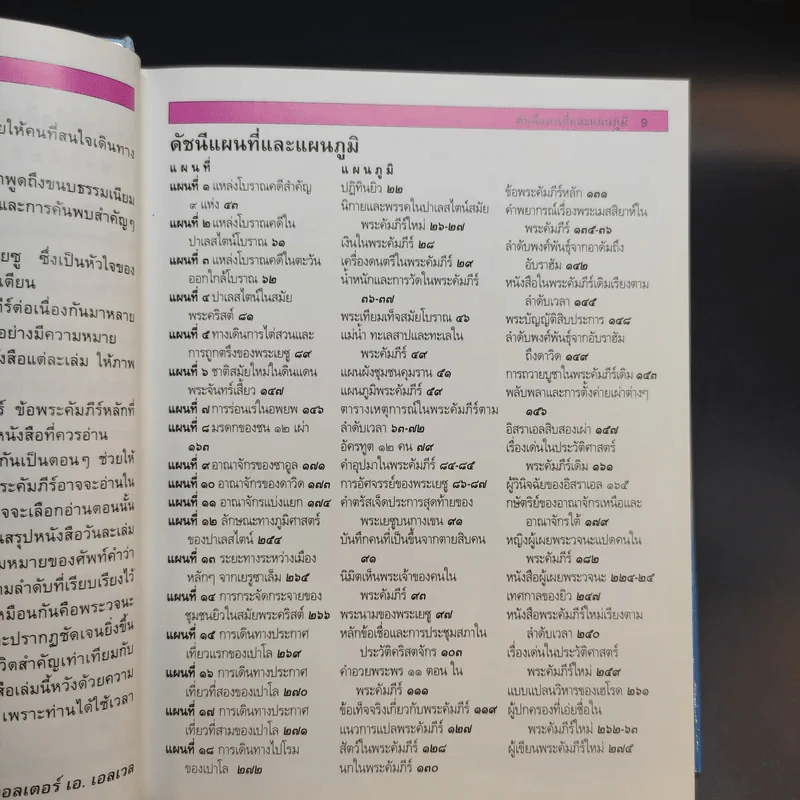 ยให้คนที่สนใจเดินทาง
าพูดถึงขนบธรรมเนียม
และการค้นพบสำคัญๆ
ยซู ซึ่งเป็นหัวใจของ
เตียน
ีร์ต่อเนื่องกันมาหลาย
อย่างมีความหมาย
ังสือแต่ละเล่ม ให้ภาพ
ร์ ข้อพระคัมภีร์หลักที่
หนังสือที่ควรอ่าน
กันเป็นตอนๆ ช่วยให้
ระคัมภีร์อาจจะอ่านใน
จจะเลือกอ่านตอนนั้น
นสรุปหนังสือวันละเล่ม
มหมายของศัพท์คำว่า
ามลำดับที่เรียบเรียงไว้
หมือนกันคือพระวจนะ
ะปรากฏชัดเจนยิ่งขึ้น
วิตสำคัญเท่าเทียมกับ
สือเล่มนี้หวังด้วยความ
เพราะท่านได้ใช้เวลา
อลเตอร์ เอ. เอลเวล
9
ดัชนีแผนที่และแผนภูมิ
แผนที่
แผนที่ ๑ แหล่งโบราณคดีสำคัญ
๙ แห่ง ๔๓
แผนที่ ๒ แหล่งโบราณคดีใน
ปาเลสไตน์โบราณ ๖๑
แผนที่ ๓ แหล่งโบราณคดีในตะวัน
ออกใกล้โบราณ ๖๒
แผนที่ ๔ ปาเลสไตน์ในสมัย
พระคริสต์ ๘๑
แผนที่ ๕ ทางเดินการไต่สวนและ
การถูกตรึงของพระเยซู ๘๙
แผนที่ ๖ ชาติสมัยใหม่ในดินแดน
พระจันทร์เสี้ยว ๑๔๗
แผนที่ ๗ การร่อนเร่ในอพยพ ๑๔๖
แผนที่ ๘ มรดกของชน ๑๒ เผ่า
๑๖๓
แผนที่ ๙ อาณาจักรของซาอูล ๑๗๑
แผนที่ ๑๐ อาณาจักรของดาวิด ๑๗๓
แผนที่ ๑๑ อาณาจักรแบ่งแยก ๑๗๔
แผนที่ ๑๒ ลักษณะทางภูมิศาสตร์
ของปาเลสไตน์ ๒๕๔
แผนที่ ๑๓ ระยะทางระหว่างเมือง
หลักๆ จากเยรูซาเล็ม ๒๖๕
แผนที่ ๑๔ การกระจัดกระจายของ
ชุมชนยิวในสมัยพระคริสต์ ๒๖๖
แผนที่ ๑๕ การเดินทางประกาศ
เที่ยวแรกของเปาโล ๒๖๙
แผนที่ ๑๖ การเดินทางประกาศ
เที่ยวที่สองของเปาโล ๒๗๐
แผนที่ ๑๗ การเดินทางประกาศ
เที่ยวที่สามของเปาโล ๒๗๑
แผนที่ ๑๘ การเดินทางไปโรม
ของเปาโล ๒๗๒
แผนภูมิ
ปฏิทินยิว ๒๒
นิกายและพรรคในปาเลสไตน์สมัย
พระคัมภีร์ใหม่ ๒๖-๒๗
เงินในพระคัมภีร์ ๒๘
เครื่องดนตรีในพระคัมภีร์ ๒๙
น้ำหนักและการวัดในพระคัมภีร์
๓๖-๓๗
พระเทียมเท็จสมัยโบราณ ๔๖
แม่น้ำ ทะเลสาปและทะเลใน
พระคัมภีร์ ๔๙
แผนผังชุมชนคุมราน ๕๑
แผนภูมิพระคัมภีร์ ๕๙
ตารางเหตุการณ์ในพระคัมภีร์ตาม
ลำดับเวลา ๖๓-๗๒
อัครทูต ๑๒ คน ๗๙
คำอุปมาในพระคัมภีร์ ๘๔-๘๕
การอัศจรรย์ของพระเยซู ๘๖-๘๗
คำตรัสเจ็ดประการสุดท้ายของ
พระเยซูบนกางเขน ๙๑
บันทึกคนที่เป็นขึ้นจากตายสิบคน
๙๑
นิมิตเห็นพระเจ้าของคนใน
พระคัมภีร์ ๙๓
พระนามของพระเยซู ๙๗
หลักข้อเชื่อและการประชุมสภาใน
ประวัติคริสตจักร ๑๐๓
คำอวยพระพร ๑๑ ตอน ใน
พระคัมภีร์ ๑๑๑
ข้อเท็จจริงเกี่ยวกับพระคัมภีร์ ๑๑๙
แนวการแปลพระคัมภีร์ ๑๒๗
สัตว์ในพระคัมภีร์ ๑๒๘
นกในพระคัมภีร์ ๑๓๐
ข้อพระคัมภีร์หลัก ๑๓๑
คำพยากรณ์เรื่องพระเมสสิยาห์ใน
พระคัมภีร์ ๑๓๕-๓๖
ลำดับพงศ์พันธุ์จากอาดัมถึง
อับราฮัม ๑๔๒
หนังสือในพระคัมภีร์เดิมเรียงตาม
ลำดับเวลา ๑๔๕
พระบัญญัติสิบประการ ๑๔๘
ลำดับพงศ์พันธุ์จากอับราฮัม
ถึงดาวิด ๑๔๙
การถวายบูชาในพระคัมภีร์เดิม ๑๕๓
พลับพลาและการตั้งค่ายเผ่าต่างๆ
๑๕๖
อิสราเอลสิบสองเผ่า ๑๕๗
เรื่องเด่นในประวัติศาสตร์
พระคัมภีร์เดิม ๑๖๑
ผู้วินิจฉัยของอิสราเอล ๑๖๕
กษัตริย์ของอาณาจักรเหนือและ
อาณาจักรใต้ ๑๗๙
หญิงผู้เผยพระวจนะแปดคนใน
พระคัมภีร์ ๑๘๒
หนังสือผู้เผยพระวจนะ ๒๒๔-๒๕
เทศกาลของยิว ๒๔๗
หนังสือพระคัมภีร์ใหม่เรียงตาม
ลำดับเวลา ๒๕๐
เรื่องเด่นในประวัติศาสตร์
พระคัมภีร์ใหม่ ๒๕๙
แบบแปลนวิหารของเฮโรด ๒๖๑
ผู้ปกครองที่เอ่ยชื่อใน
พระคัมภีร์ใหม่ ๒๖๒-๖๓
ผู้เขียนพระคัมภีร์ใหม่ ๒๗๕